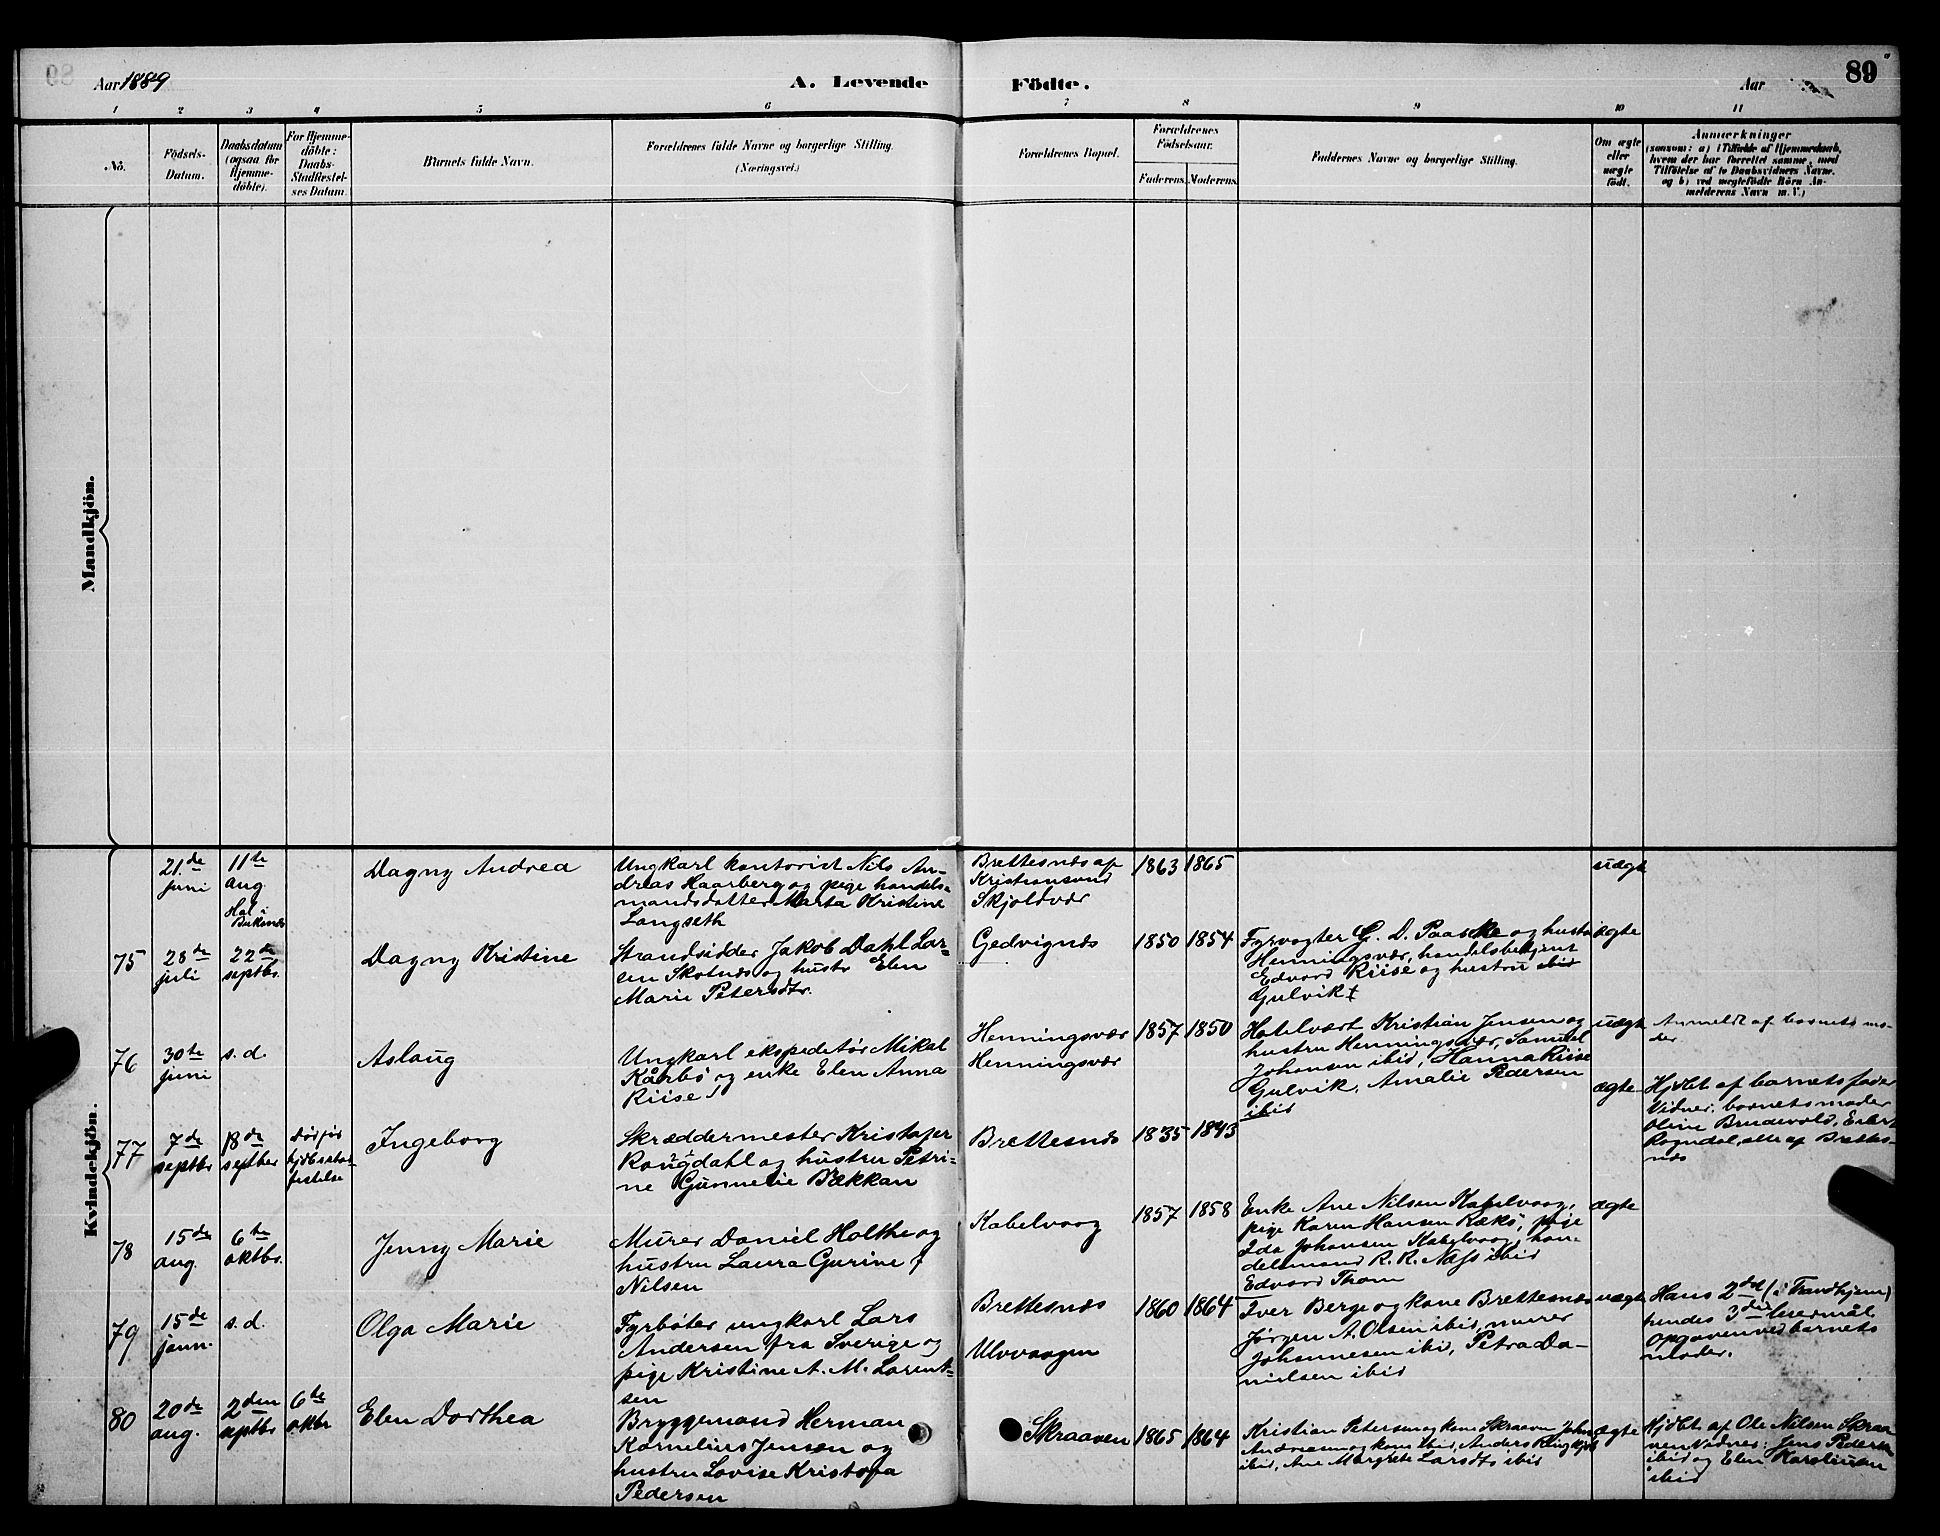 Aar 1889
A. Levende
Födte.
Aar
89
1 2 3 4 5 6 7 8 9 10 11
No.
Födsels-
Datum.
Daabsdatum
(ogsaa for
Hjemme-
döbte).
For Hjemme-
döbte:
Daabs-
Stadfæstel-
ses Datum.
Barnets fulde Navn.
Forældrenes fulde Navne og borgerlige Stilling.
(Næringsvei.)
Forældrenes Bopæl.
Forældrenes
Födselsaar.
Faderens.
Moderens.
Faddernes Navne og borgerlige Stilling.
Om ægte
eller
uægte
födt.
Anmærkninger
(saasom: a) i Tilfælde af Hjemmedaab,
hvem der har forrettet samme, med
Tilföielse af to Daabsvidners Navne.
og b) ved uægtefödte Börn An-
melderens Navn m. V.)
Mandkjön.
Kvindekjön.
21de
juni
11te
aug.
Hol i
Buksnæs
Dagny Andrea
Ungkarl kontorist Nils An-
dreas Haarberg og pige handels-
mandsdatter Marta Kristine
Langseth
Brettesnæs af
Kristiansund
Skjoldvær
1863
1865
uægte
75
28de
juli
22de
septbr.
Dagny Kristine
Strandsidder Jakob Dahl Lar-
sen Skotnæs og hustr Elen
Marie Petersdtr.
Gedvignæs
1850
1854
Fyrvogter G. D. Paaske og hustru
Henningsvær, handelsbetjent
Edvard Riise og hustru ibid
Gulvik
ægte
76
30te
juni
s. d.
Aslaug
Ungkarl ekspeditør Mikal
Kårbø og enke Elen Anna
Riise
Henningsvær
Henningsvær
1857
1850
Hotelvært Kristian Jensen og
hustru Henningsvær, Samuel
Johansen ibid, Hanna Riise
Gulvik, Amalie Pedersen
ibid
uægte
Anmeldt af barnets mo-
der
77
7de
septbr
18de
septber
Ingeborg
Skræddermester Kristofer
Rongdahl og hustru Petri-
ne Gunnelie Bækkan
Brettesnæs
1835
1843
ægte
Hjdbt af barnets fader
Vidner: barnets moder
Oline Brudevold, Eilert
Rogndal, alle af Brettes-
næs
78
15de
aug.
6te
oktbr.
Jenny Marie
Murer Daniel Holthe og
hustru Laura Gurine
Nilsen
Kabelvaag
1857
1858
Enke Ane Nilsen Kabelvaag,
pige Karen Hansen Rækø, pige
Ida Johansen Kabelvaag, han-
delsmand R. R. Næss ibid
Edvard Thom
ægte
79
15de
jann.
s. d.
Olga Marie
Fyrbøter ungkarl Lars
Andersen fra Sverige og
pige Kristine A. M. Larent-
sen
Brettesnæs
Ulvvaagen
1860
1864
Iver Berge og kone Brettesnæs
Jørgen A. Olsen ibid, murer
Johannesen ibi, Petra Da-
nielsen ibid
uægte
Hans 2det (i Trondhjem)
hendes 3die leiermål
Opgaven ved barnets
moder.
80
20de
aug.
2den
septbr
6te
oktbr
Elen Dorthea
Bryggemand Herman
Kornelius Jensen og
hustru Lovise Kristofa
Pedersen
Skraaven
1865
1864
Kristian Petersen og kone Skraaven John
Andreasen og kone ibid, Anders
ibid, Ane Margrete Larsdtr ibid
ægte
Hjdbt. af Ole Nilsen Skraa-
ven Vidner: Jens Pedersen
ibid og Elen Karoliusen
ibid